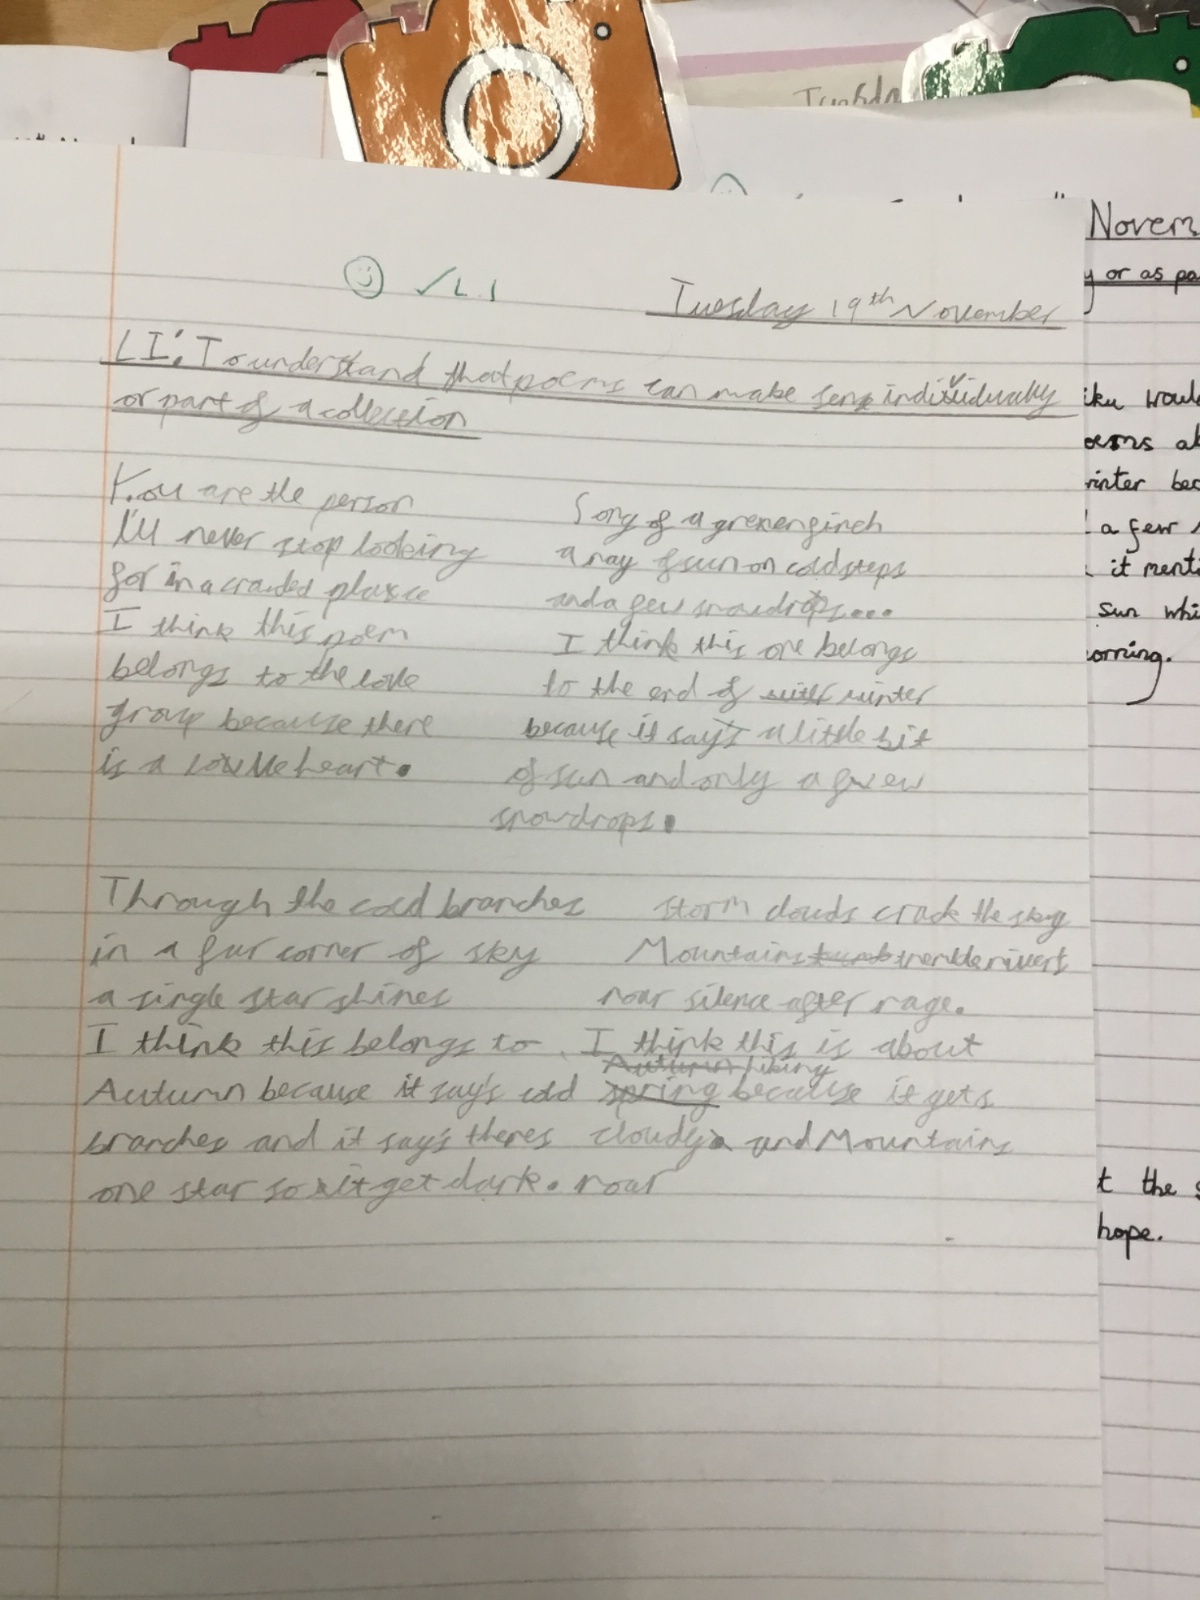 Tuesda
Novem
y or as pa
☺ ✓L.I
Tuesday 19th November
LI: To understand that poems can make sense individually
or part of a collection
You are the person
I'll never stop looking
for in a crowded place
I think this poem
belongs to the love
group because there
is a heart.
Song of a greenfinch
a ray of sun on cold steps
and a few snowdrops...
I think this one belongs
to the end of winter
because it say's a little bit
of sun and only a few
snowdrops.
Through the cold branches
in a far corner of sky
a single star shines
I think this belongs to
Autumn because it say's cold
branches and it say's theres
one star so it get dark.
Storm clouds crack the sky
Mountains tremble rivers
roar silence after rage.
I think this is about
Autumn
spring because it gets
cloudy and Mountains
roar
iku would
oems ab
winter bec
a few s
it menti
sun whi
orning.
t the s
hope.